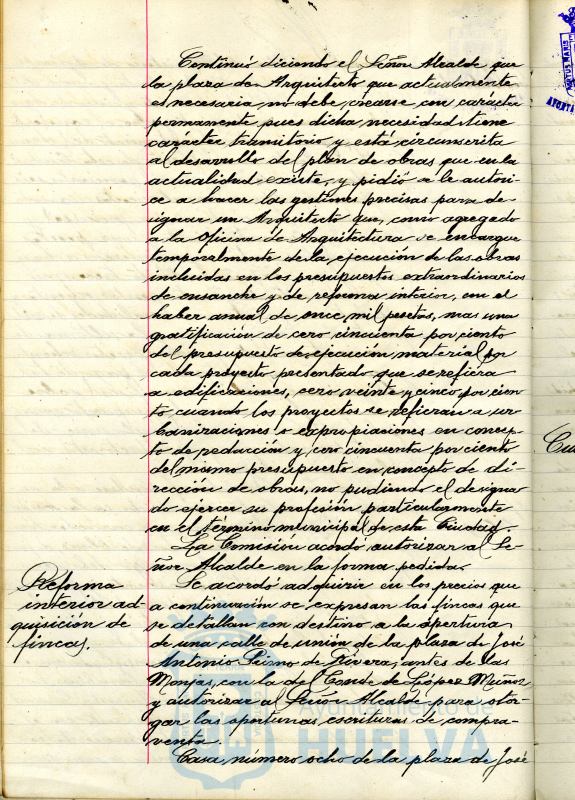 Continuó diciendo el Señor Alcalde que
la plaza de Arquitecto que actualmente
es necesaria, no debe, crearse con caracter
permanente pues dicha necesidad tiene
carácter transitorio y está circunscrita
al desarrollo del plan de obras que en la
actualidad existe, y pidió se le autori-
ce a hacer las gestiones precisas para de-
signar un Arquitecto que, como agregado
a la Oficina de Arquitectura se encargue
temporalmente de la ejecución de las obras
incluidas en los presupuestos extraordinarios
de ensanche y de reforma interior, con el
haber anual de once mil pesetas, mas una
gratificación de cero cincuenta por ciento
del presupuesto de ejecución material por
cada proyecto presentado que se refiera
a edificaciones, cero veinte y cinco por cien-
to cuando los proyectos se refieran a ur-
banizaciones o expropiaciones en concep-
to de redacción y cero cincuenta por ciento
del mismo presupuesto en concepto de di-
rección de obras, no pudiendo el designa-
do ejercer su profesión particularmente
en el término municipal de esta Ciudad.
La Comisión acordó autorizar al Se-
ñor Alcalde en la forma pedida.
Reforma
interior ad-
quisición de
fincas.
Se acordó adquirir en los precios que
a continuación se expresan las fincas que
se detallan con destino a la apertura
de una calle de unión de la plaza de José
Antonio Primo de Rivera, antes de las
Monjas, con la del Conde de López Muñoz
y autorizar al Señor Alcalde para otor-
gar las oportunas escrituras de compra-
venta.
Casa, número ocho de la plaza de José
Ayuntamiento de
HUELVA